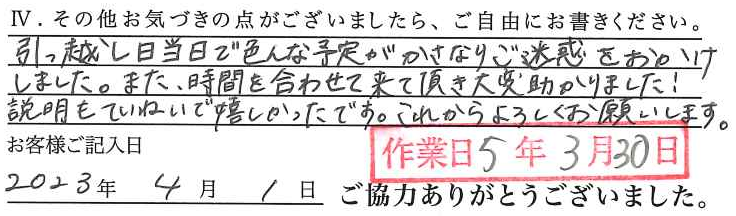 Ⅳ．その他お気づきの点がございましたら、ご自由にお書きください。
引っ越し日当日で色んな予定がかさなりご迷惑をおかけ
しました。また、時間を合わせて来て頂き大変助かりました!
説明もていねいで嬉しかったです。これからよろしくお願いします。
お客様ご記入日
作業日5年3月30日
2023年 4月 1日 ご協力ありがとうございました。